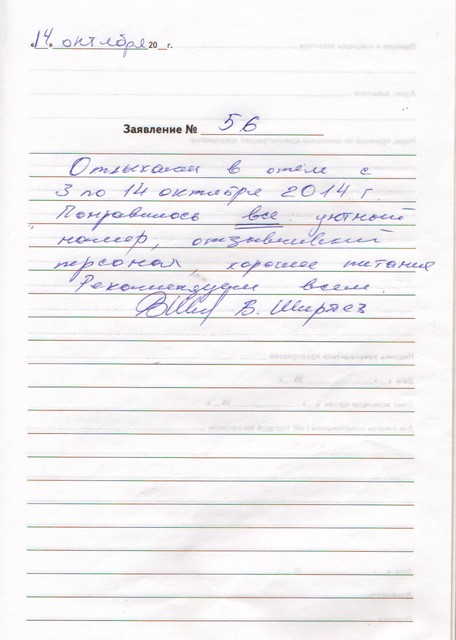 «14» октября 20 г.
Заявление № 56
Отдыхали в отеле с
3 по 14 октября 2014 г.
Понравилось все: уютный
номер, отзывчивый
персонал, хорошее питание
Рекомендуем всем.
В. Ширяев